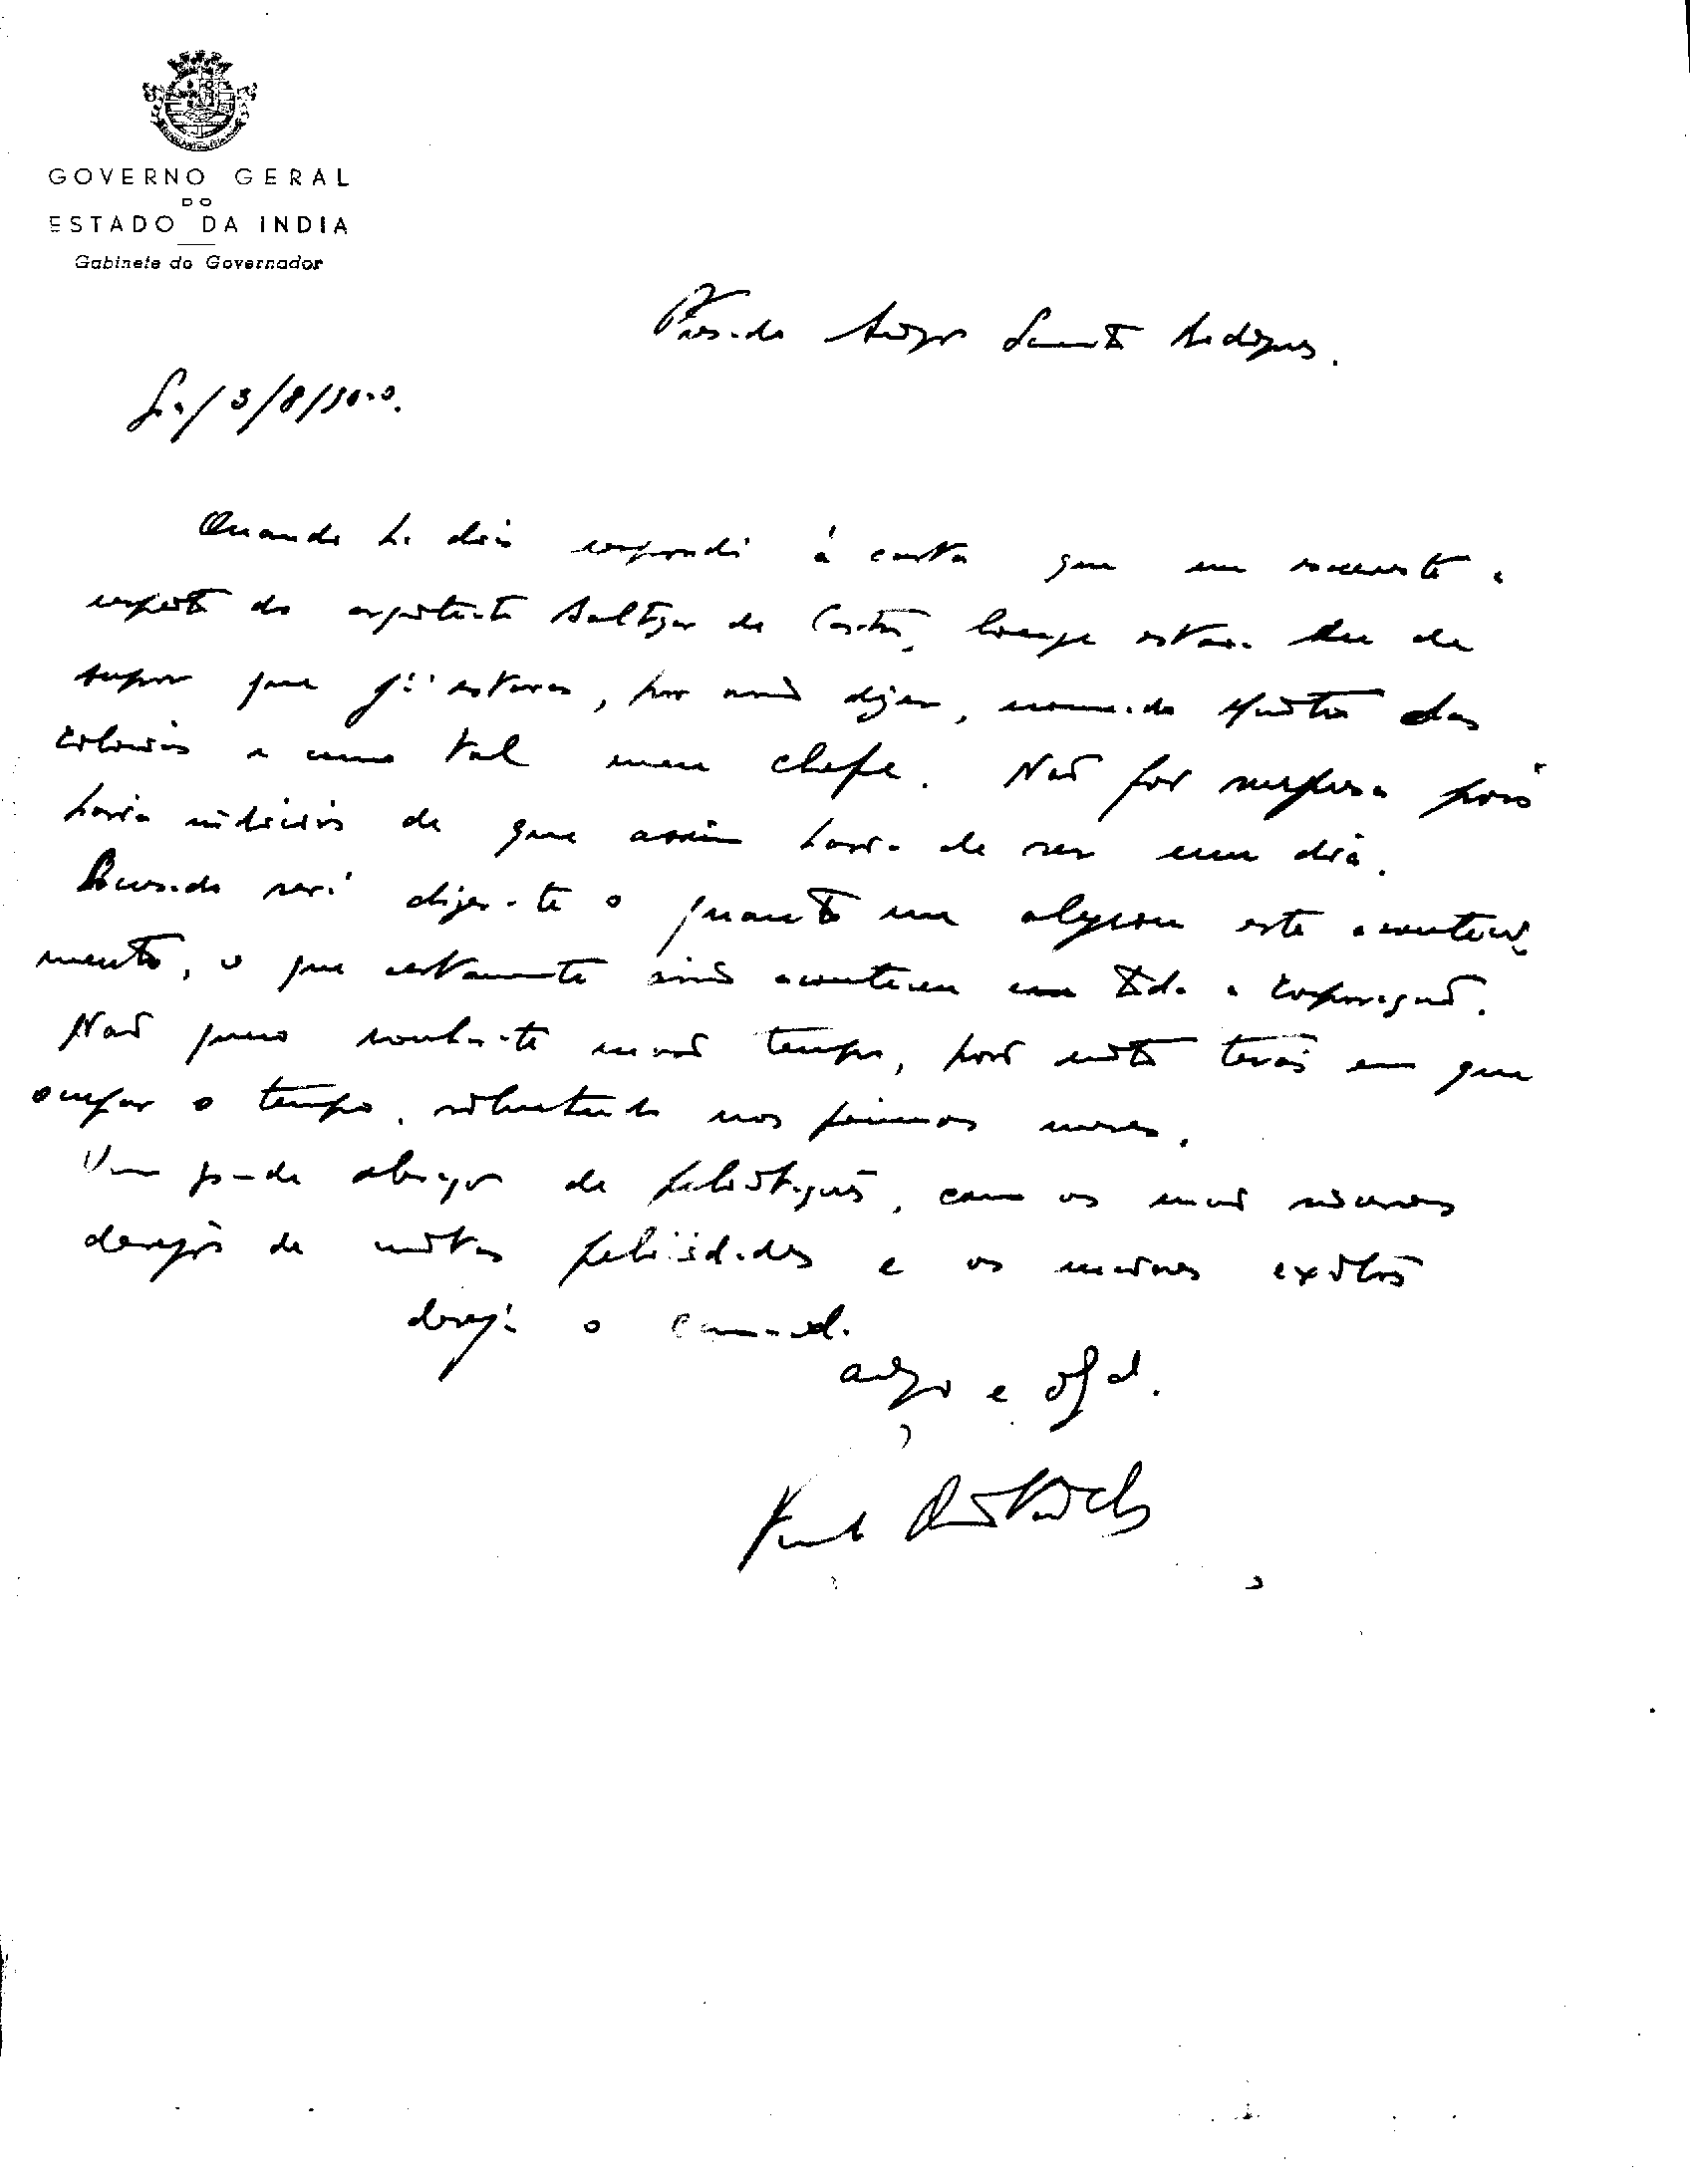 GOVERNO GERAL
DO
ESTADO DA INDIA
Gabinete do Governador
Prezado Amigo Sarmento Rodrigues.
Goa/3/8/950.
Quando há dias respondi à carta que me mandaste a
respeito do arquitecto Baltazar de Castro, longe estava eu de
supor que já estavas, por assim dizer, nomeado Ministro das
Colonias e como tal meu chefe. Não foi surpresa pois
havia indicios de que assim havia de ser um dia.
Escusado será dizer-te o quanto me alegrou este aconteci-
mento, o que certamente assim aconteceu em toda a Corporação.
Não quero roubar-te mais tempo, pois muito terás em que
ocupar o tempo, sobretudo nos primeiros meses.
Um grande abraço de felicitações, com os mais sinceros
desejos de muitas felicidades e os maiores exitos
deseja o camarada
amigo e obgdo.
Fernando Quintanilha